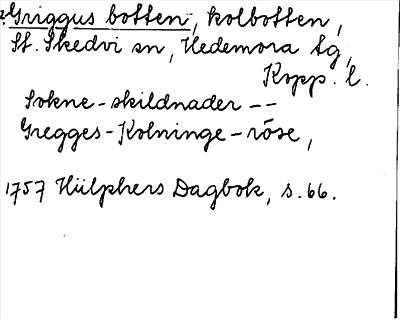 ?Griggus botten, kolbotten,
St. Skedvi sn, Hedemora tg,
Kopp. l.
Sokne-skildnader --
Gregges-Kolninge-röse,
1757 Hülphers Dagbok, s. 66.